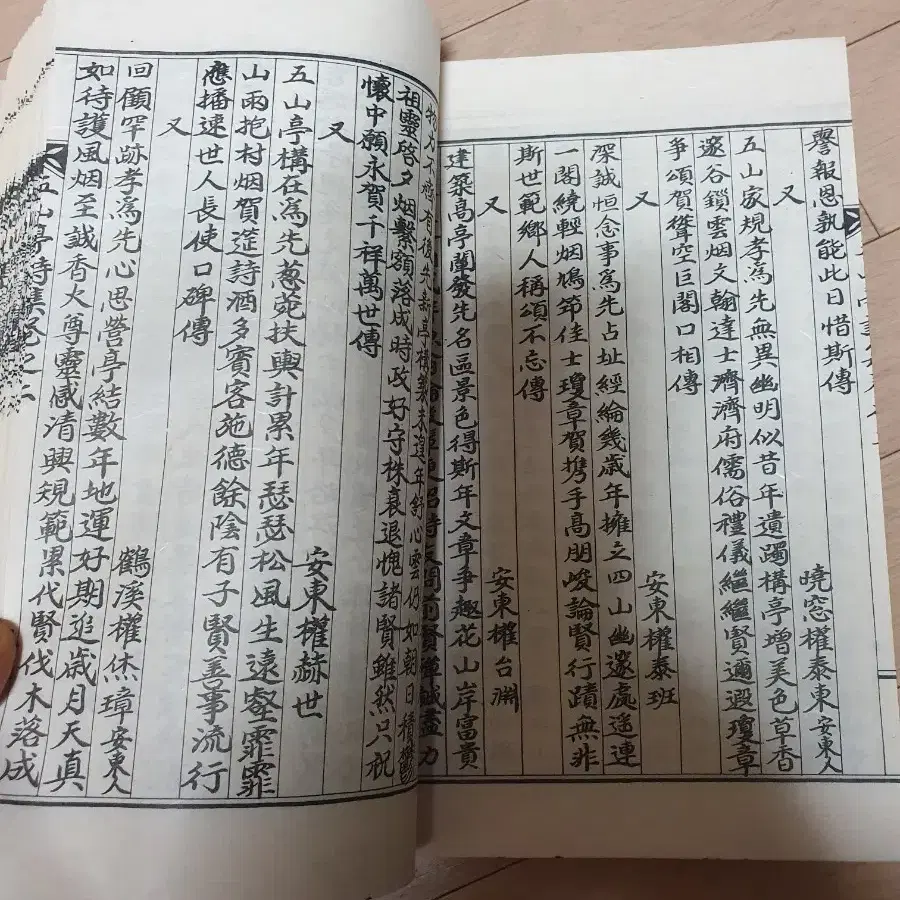 譽報恩孰能此日惜斯傳
又 曉窓權泰東安東人
五山家規孝爲先無異幽明似昔年遺躅構亭增美色草香
邃谷鎖雲烟文翰達士濟濟府儒俗禮儀繼繼賢邇遐瓊章
爭頌賀聳空巨閣口相傳
又 安東權泰班
深誠恒念事爲先占址經綸幾歲年擁之四山幽邃處逶連
一閣繞輕烟鳩笻佳士瓊章賀携手高朋峻論賢行蹟無非
斯世範鄉人稱頌不忘傳
又 安東權台淵
建築高亭闡發先名區景色得斯年文章爭趣花山岸富貴
有後先新亭構製未遑年舒心雲仍如朝日積鬱
祖靈啓夕烟繫額落成時政好守株衰退愧諸賢雖然只祝
懷中願永賀千祥萬世傳
又 安東權赫世
五山亭構在爲先葱菀扶輿計累年瑟瑟松風生遠壑霏霏
山雨抱村烟賀莚詩酒多賓客施德餘陰有子賢善事流行
應播速世人長使口碑傳
又 鶴溪權烋璋安東人
回顧罕跡孝爲先心思營亭結數年地運好期進歲月天眞
如待護風烟至誠香火尊靈感淸興規範累代賢伐木落成
五山亭詩集卷之二